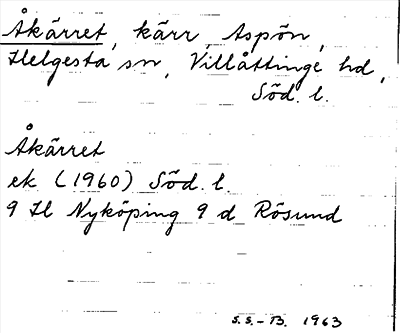 Åkärret, kärr, Aspön,
Helgesta sn, Villåttinge hd,
Söd. l.
Åkärret
ek (1960) Söd. l.
9 H Nyköping 9 d Rösund
S.S.-B. 1963